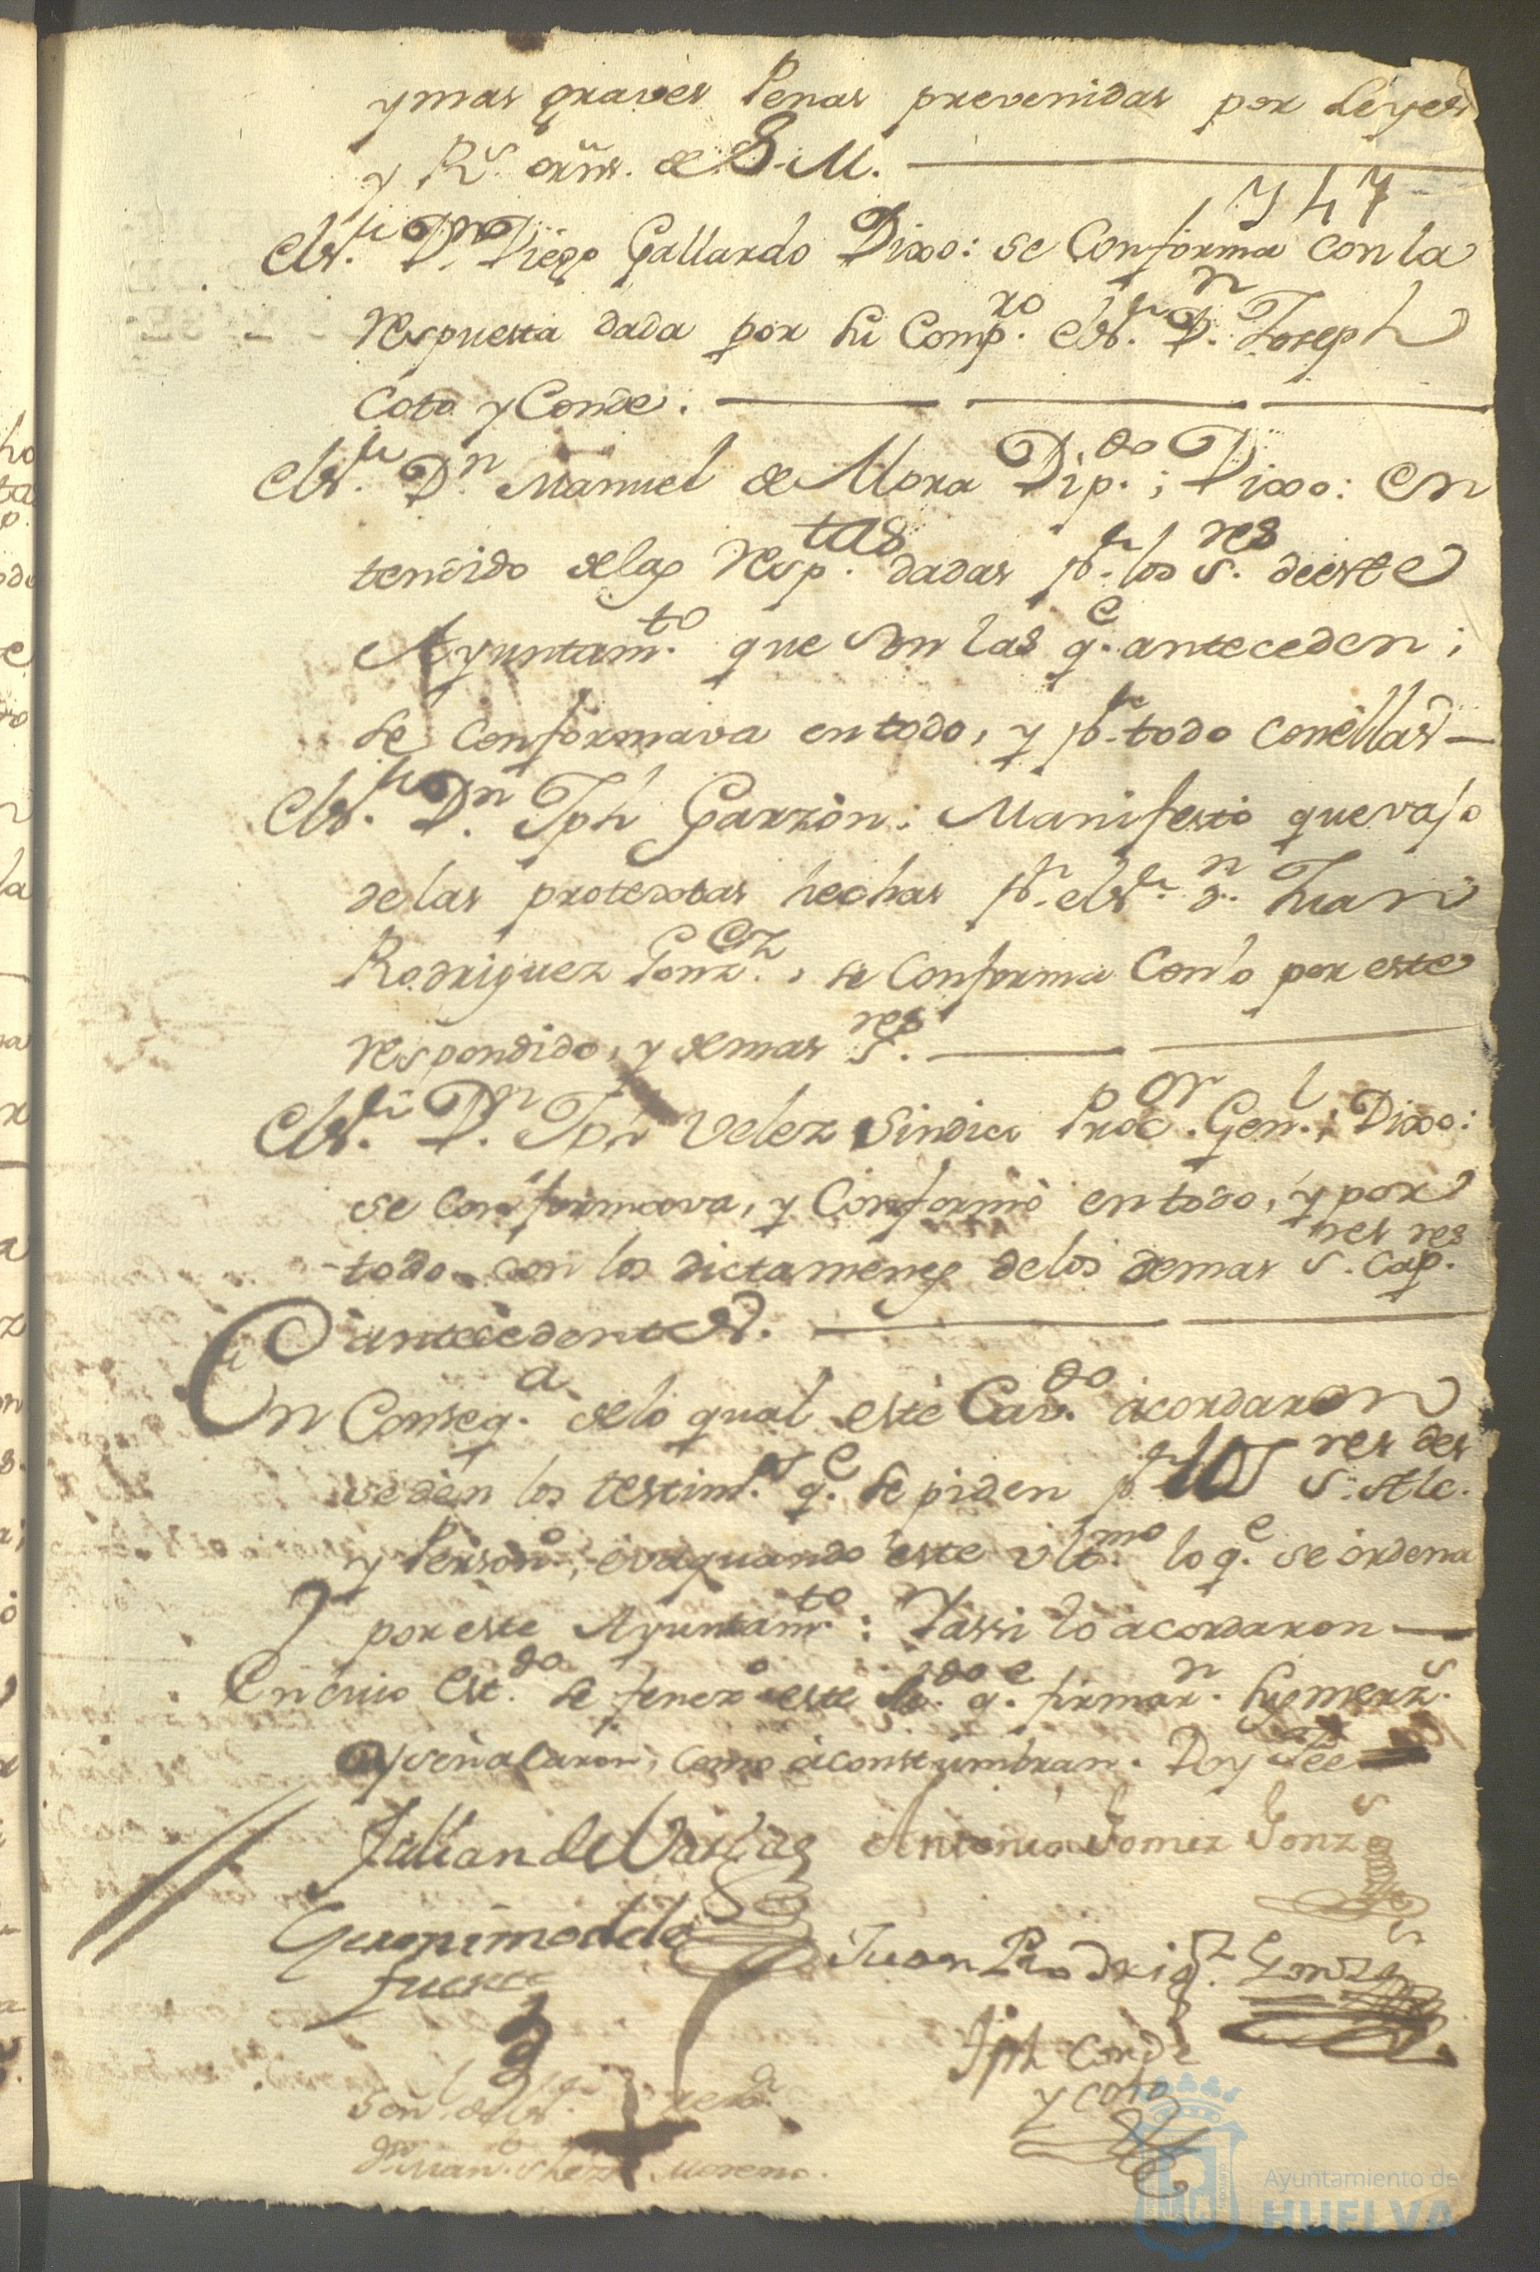 y mas graves Penas prevenidas por Leyes
y R.s orñs. de S. M.
747
El S.r D.n Diego Gallardo Dixo: se Conforma con la
respuesta dada por su Comp.ro el S.r D.n Joseph
Coto y Conde.
El S.r D.n Manuel de Mora Dip.do; Dixo: en
tendido delas resp.tas dadas p.r los S.res de este
Ayuntam.to que son las q.e anteceden;
se Conformava en todo, y p.r todo con ellas
El S.r D.n Jph Garzòn: Manifestò que vajo
de las protextas hechas p.r el S.r D.n Juan
Rodriguez Gonz.ez, se Conforma con lo por este
respondido, y demas S.res
El S.r D.n Jph Velez Sindico Proc.or Gen.l; Dixo:
se conformava, y Conformò en todo, y por
todo con los dictamenes de los demas S.res Cap.res
antecedentes.
En Conseq.a delo qual este Cav.do acordaron
se dèn los testim.os q.e se piden p.r los S.res Alc.des
y Person.o, evaquando este ultº.mo lo q.e se ordena
por este Ayuntam.to: Y assi lo acordaron
En cuio est.do se fenezº este q.e firmar.n sus merz.s
y señalaron, como acostumbran. Doy Fee
Julian de Vargas Antonio Gomez Gonz.s
Geronimo de la
fuente
Juan Rodrig.z Gonz.s
Jph Conde
y Coto
Señ.l del S.r
D.n Juan Moreno.
Ayuntamiento de
HUELVA